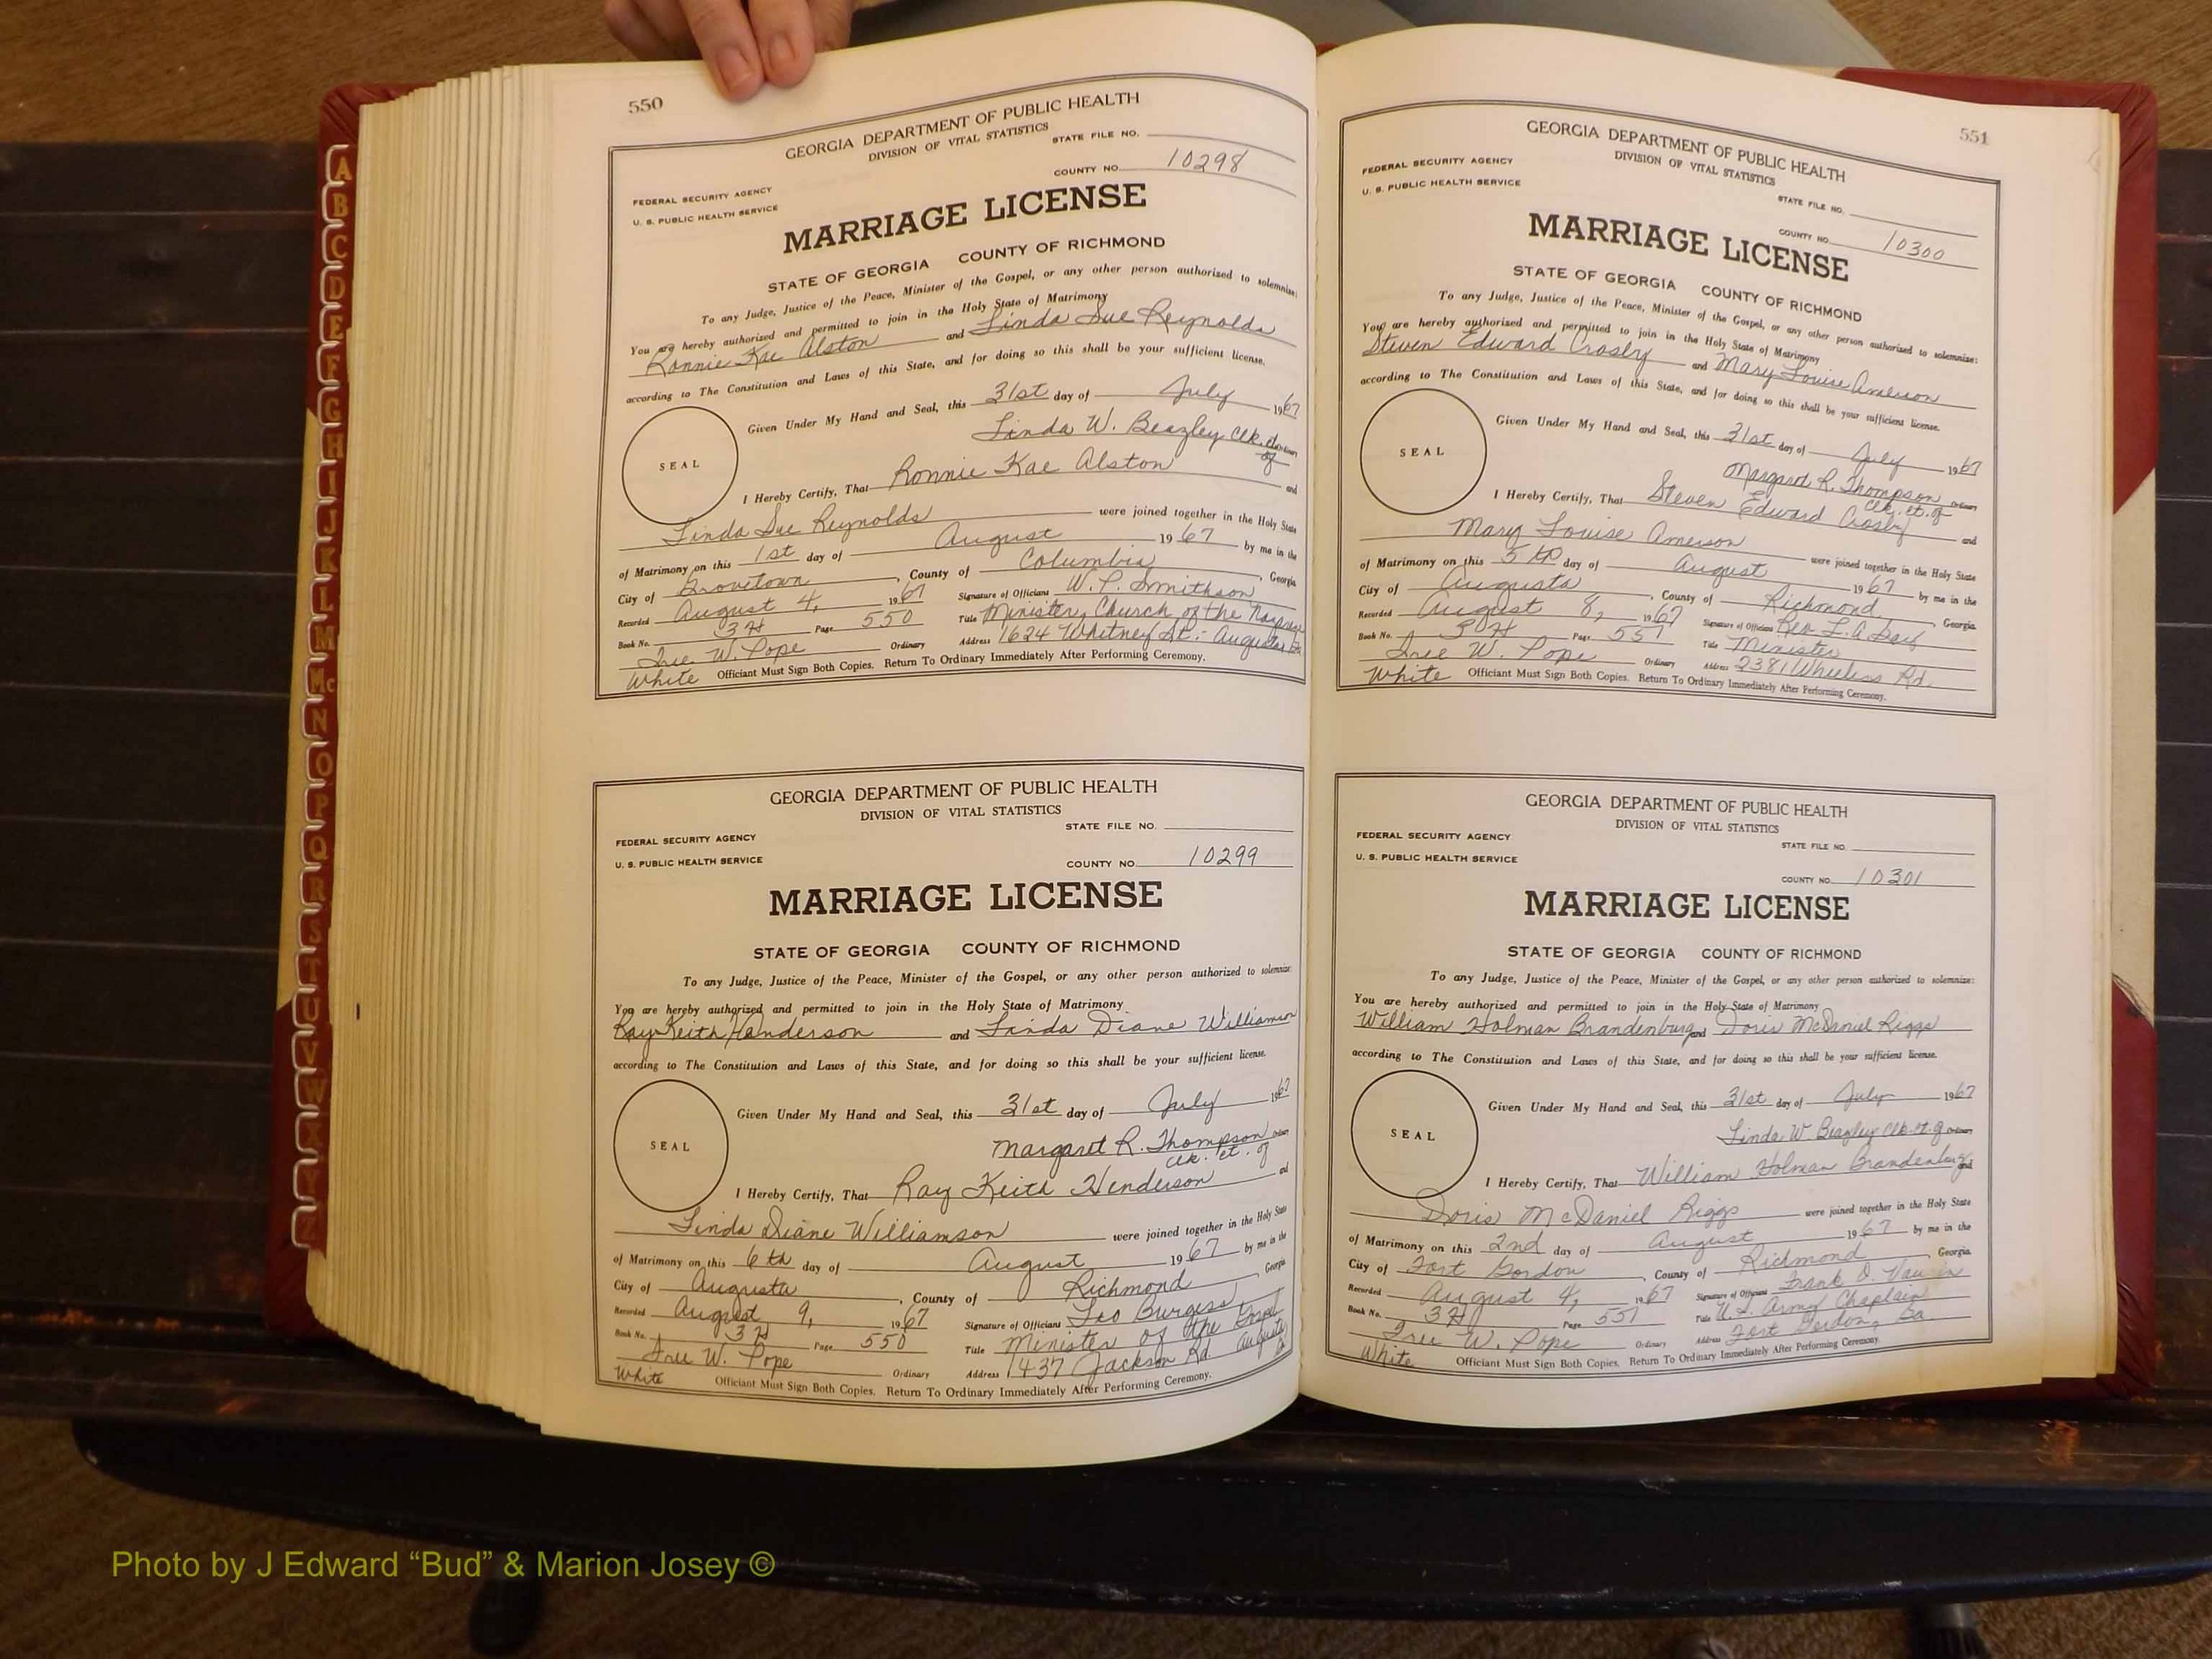 550
GEORGIA DEPARTMENT OF PUBLIC HEALTH
DIVISION OF VITAL STATISTICS
STATE FILE NO.
FEDERAL SECURITY AGENCY
U. S. PUBLIC HEALTH SERVICE
COUNTY NO. 10298
MARRIAGE LICENSE
STATE OF GEORGIA COUNTY OF RICHMOND
To any Judge, Justice of the Peace, Minister of the Gospel, or any other person authorized to solemnize:
You are hereby authorized and permitted to join in the Holy State of Matrimony
Ronnie Kae Alston and Linda Sue Reynolds
according to The Constitution and Laws of this State, and for doing so this shall be your sufficient license.
Given Under My Hand and Seal, this 31st day of July 1967
Linda W. Beazley Clk. Ordinary
SEAL
I Hereby Certify, That Ronnie Kae Alston and
Linda Sue Reynolds were joined together in the Holy State
of Matrimony on this 1st day of August 1967 by me in the
City of Grovetown, County of Columbia, Georgia
Recorded August 4, 1967 Signature of Officiant W. P. Smithson
Book No. 3H Page 550 Title Minister, Church of the
Iree W. Pope Ordinary Address 1624 Whitney St. Augusta
White Officiant Must Sign Both Copies. Return To Ordinary Immediately After Performing Ceremony.
GEORGIA DEPARTMENT OF PUBLIC HEALTH
DIVISION OF VITAL STATISTICS
STATE FILE NO.
FEDERAL SECURITY AGENCY
U. S. PUBLIC HEALTH SERVICE
COUNTY NO. 10299
MARRIAGE LICENSE
STATE OF GEORGIA COUNTY OF RICHMOND
To any Judge, Justice of the Peace, Minister of the Gospel, or any other person authorized to solemnize:
You are hereby authorized and permitted to join in the Holy State of Matrimony
Ray Keith Henderson and Linda Diane Williamson
according to The Constitution and Laws of this State, and for doing so this shall be your sufficient license.
Given Under My Hand and Seal, this 31st day of July 1967
Margaret R. Thompson Ordinary
Clk. Ct. of
SEAL
I Hereby Certify, That Ray Keith Henderson and
Linda Diane Williamson were joined together in the Holy State
of Matrimony on this 6th day of August 1967 by me in the
City of Augusta, County of Richmond, Georgia
Recorded August 9, 1967 Signature of Officiant Leo Burgess
Book No. 3H Page 550 Title Minister of the Gospel
Iree W. Pope Ordinary Address 1437 Jackson Rd Augusta
White Officiant Must Sign Both Copies. Return To Ordinary Immediately After Performing Ceremony.
551
GEORGIA DEPARTMENT OF PUBLIC HEALTH
DIVISION OF VITAL STATISTICS
STATE FILE NO.
FEDERAL SECURITY AGENCY
U. S. PUBLIC HEALTH SERVICE
COUNTY NO. 10300
MARRIAGE LICENSE
STATE OF GEORGIA COUNTY OF RICHMOND
To any Judge, Justice of the Peace, Minister of the Gospel, or any other person authorized to solemnize:
You are hereby authorized and permitted to join in the Holy State of Matrimony
Steven Edward Crosby and Mary Louise Amerson
according to The Constitution and Laws of this State, and for doing so this shall be your sufficient license.
Given Under My Hand and Seal, this 31st day of July 1967
Margaret R. Thompson Ordinary
Clk. Ct. of
SEAL
I Hereby Certify, That Steven Edward Crosby and
Mary Louise Amerson were joined together in the Holy State
of Matrimony on this 5th day of August 1967 by me in the
City of Augusta, County of Richmond, Georgia
Recorded August 8, 1967 Signature of Officiant Rev. L. A.
Book No. 3H Page 551 Title Minister
Iree W. Pope Ordinary Address 2381 Wheeless Rd.
White Officiant Must Sign Both Copies. Return To Ordinary Immediately After Performing Ceremony.
GEORGIA DEPARTMENT OF PUBLIC HEALTH
DIVISION OF VITAL STATISTICS
STATE FILE NO.
FEDERAL SECURITY AGENCY
U. S. PUBLIC HEALTH SERVICE
COUNTY NO. 10301
MARRIAGE LICENSE
STATE OF GEORGIA COUNTY OF RICHMOND
To any Judge, Justice of the Peace, Minister of the Gospel, or any other person authorized to solemnize:
You are hereby authorized and permitted to join in the Holy State of Matrimony
William Holman Brandenburg and Doris McDaniel Riggs
according to The Constitution and Laws of this State, and for doing so this shall be your sufficient license.
Given Under My Hand and Seal, this 31st day of July 1967
Linda W. Beazley Clk. Ct. of Ordinary
SEAL
I Hereby Certify, That William Holman Brandenburg and
Doris McDaniel Riggs were joined together in the Holy State
of Matrimony on this 2nd day of August 1967 by me in the
City of Fort Gordon, County of Richmond, Georgia
Recorded August 4, 1967 Signature of Officiant Frank O.
Book No. 3H Page 551 Title U.S. Army Chaplain
Iree W. Pope Ordinary Address Fort Gordon, Ga.
White Officiant Must Sign Both Copies. Return To Ordinary Immediately After Performing Ceremony.
A
B
C
D
E
F
G
H
I
J
K
L
M
Mc
N
O
P
Q
R
S
T
U
V
W
X
Y
Z
Photo by J Edward “Bud” & Marion Josey ©